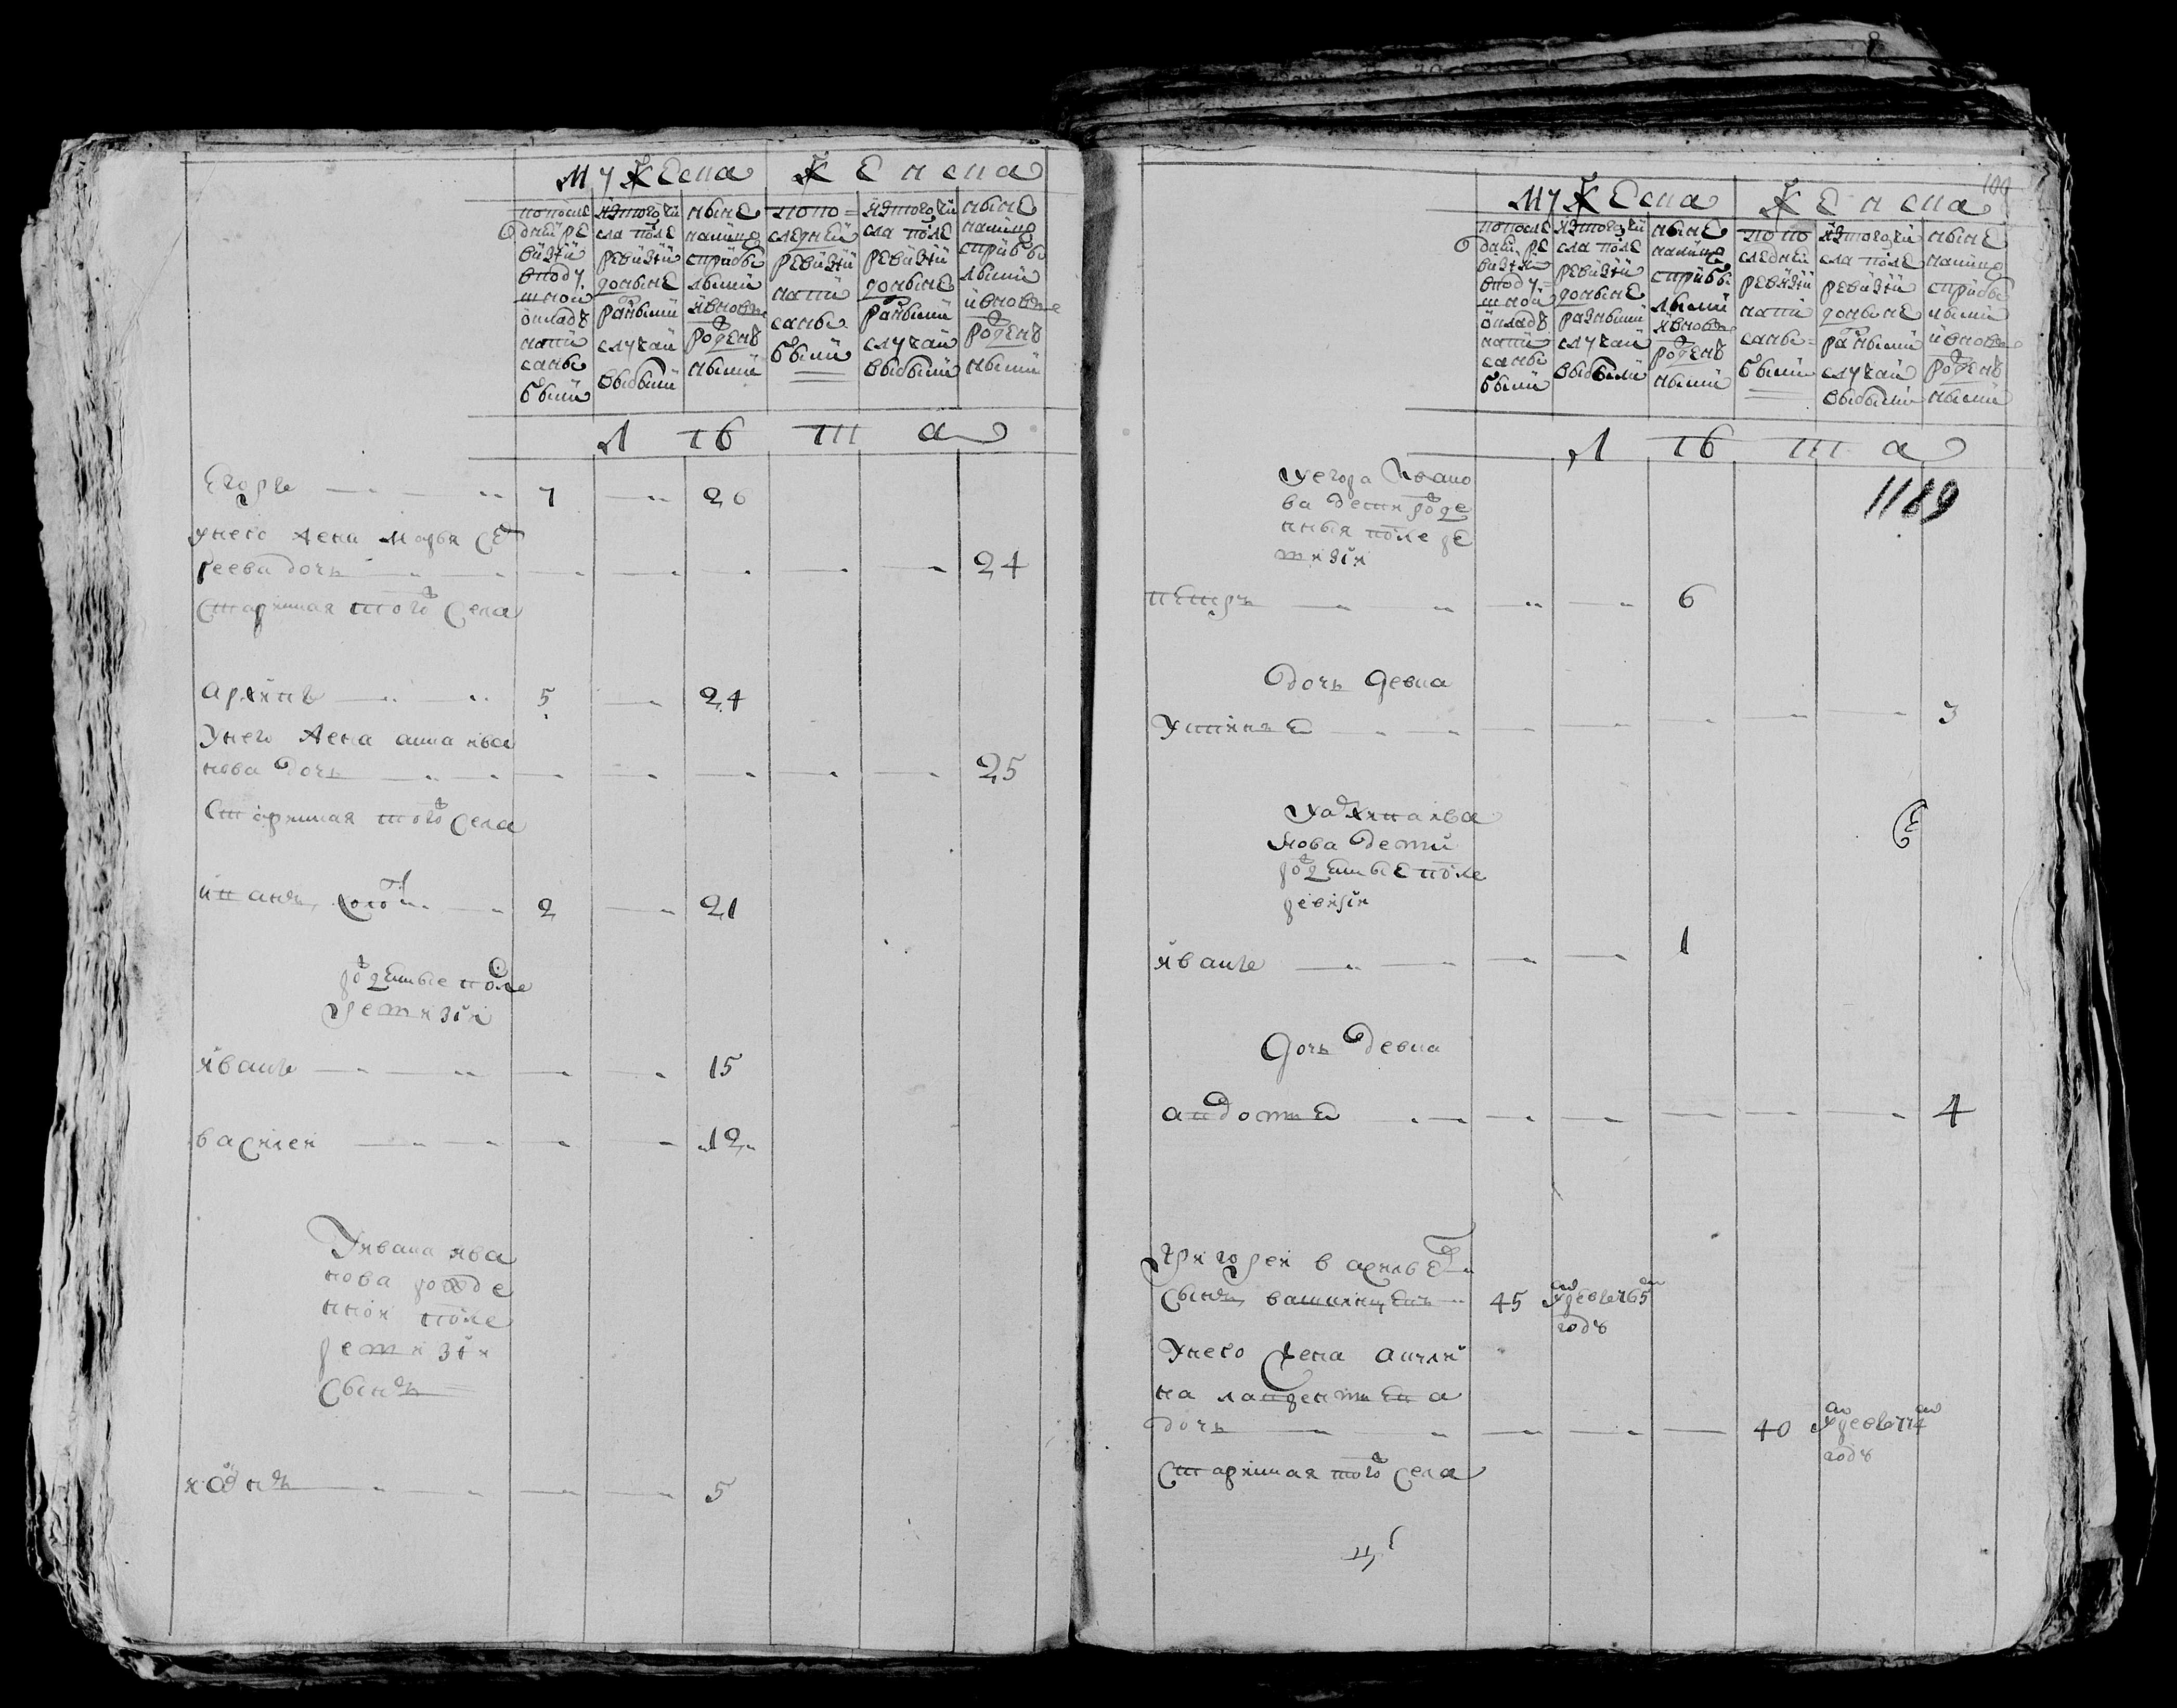 Мужеска
Женска
по после
дней ре
визии
в поду
шной
окладъ
напи
саны
были
из того чи
сла после
ревизии
до ныне
разными
случаи
выбыли
ныне
налицо
с прибы
лыми
и вновь
рожденъ
ными
по по=
следней
ревизии
напи
саны
были
из того чи
сла после
ревизии
до ныне
разными
случаи
выбыли
ныне
налицо
с прибы
лыми
и вновь
рожденъ
ными
Лѣта
Егоръ 7 26
У него жена Марья Се
геева дочь 24
Старинная того села
Архипъ 5 24
У него жена Анна Ива
нова дочь 25
Старинная того села
2 21
рожденные после
ревизии
Иванъ 15
Василей 12
У Ивана Ива
нова рожде
нной после
ревизии
сынъ
5
109
Мужеска
Женска
по после
дней ре
визии
в поду=
шной
окладъ
напи
саны
были
из того чи
сла после
ревизии
до ныне
разными
случаи
выбыли
ныне
налице
с прибы
лыми
и вновь
рожденъ
ными
по по
следней
ревизии
напи
саны=
были
из того чи
сла после
ревизии
до ныне
разными
случаи
выбыли
ныне
налицо
с прибы
лыми
и вновь
рожденъ
ными
Лѣта
1189
У Егора Ивано
ва дети рожде
нныя после ре
визии
Петръ 6
дочь девка
Устинья 3
У Архипа Ива
нова дети
рожденные после
ревизии
Иванъ 1
Дочь девка
Авдотья 4
Григорей Васильевъ
сынъ 45 умре въ 765м
годѣ
У него жена
на Лаврентьева
дочь 40 умре въ 774м
годѣ
Старинная того села